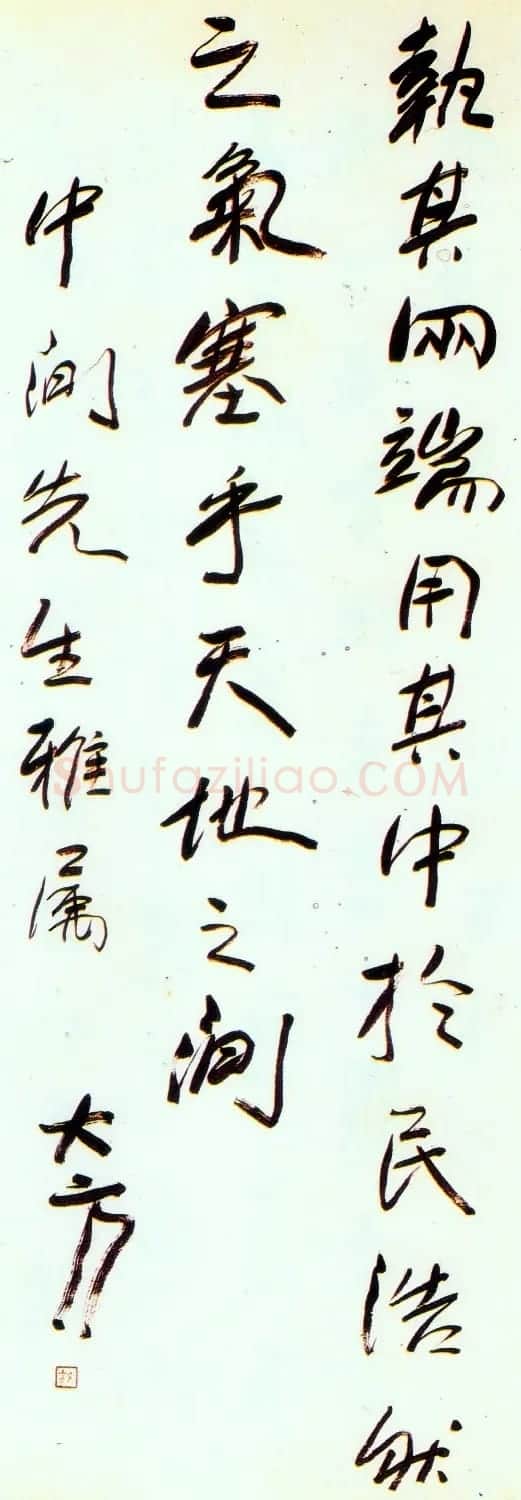 執其兩端用其中於民浩然
之氣塞乎天地之間
中間先生雅属
大方
Shufaziliao.COM